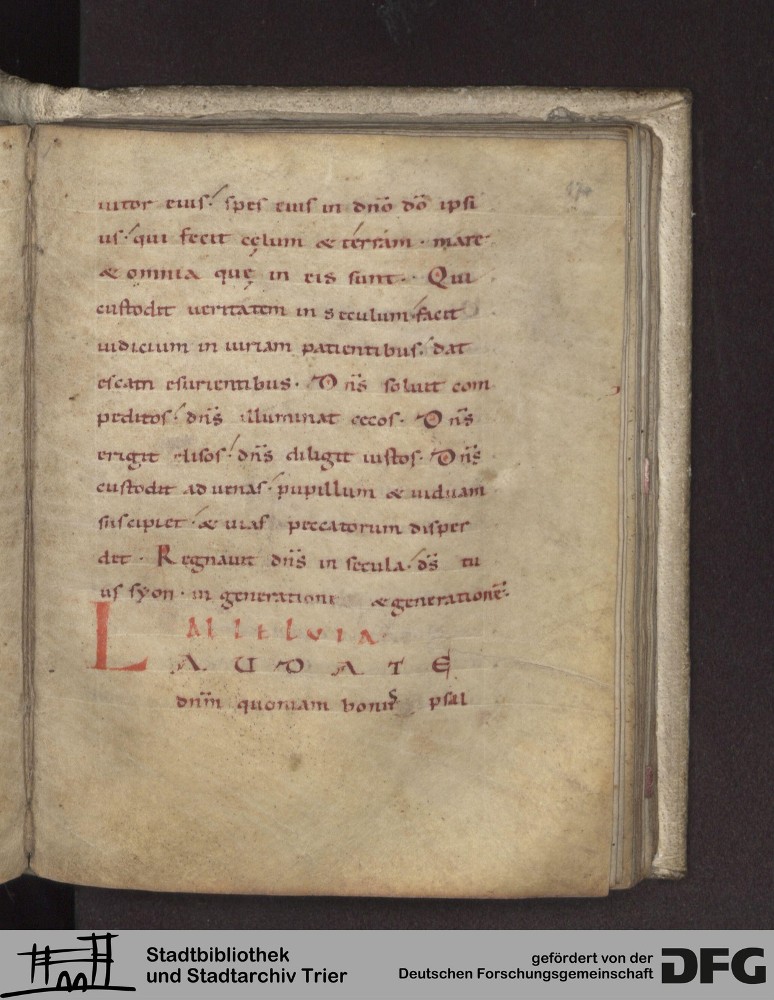 iutor eius. spes eius in dn̄o dō ipsi
us. qui fecit cęlum & terram. mare
& omnia quę in eis sunt. Qui
custodit ueritatem in seculum. facit
iudicium in iuriam patientibus. dat
escam esurientibus. Dn̄s soluit com
peditos. dn̄s illuminat cecos. Dn̄s
erigit elisos. dn̄s diligit iustos. Dn̄s
custodit aduenas. pupillum & uiduam
suscipiet. & uias peccatorum disper
det. Regnauit dn̄s in secula. ds̄ tu
us syon. in generatione &generationē.
Alleluia
LAUDATE
dnm̄ quoniam bonus psal
Stadtbibliothek
und Stadtarchiv Trier
gefördert von der
Deutschen Forschungsgemeinschaft
DFG